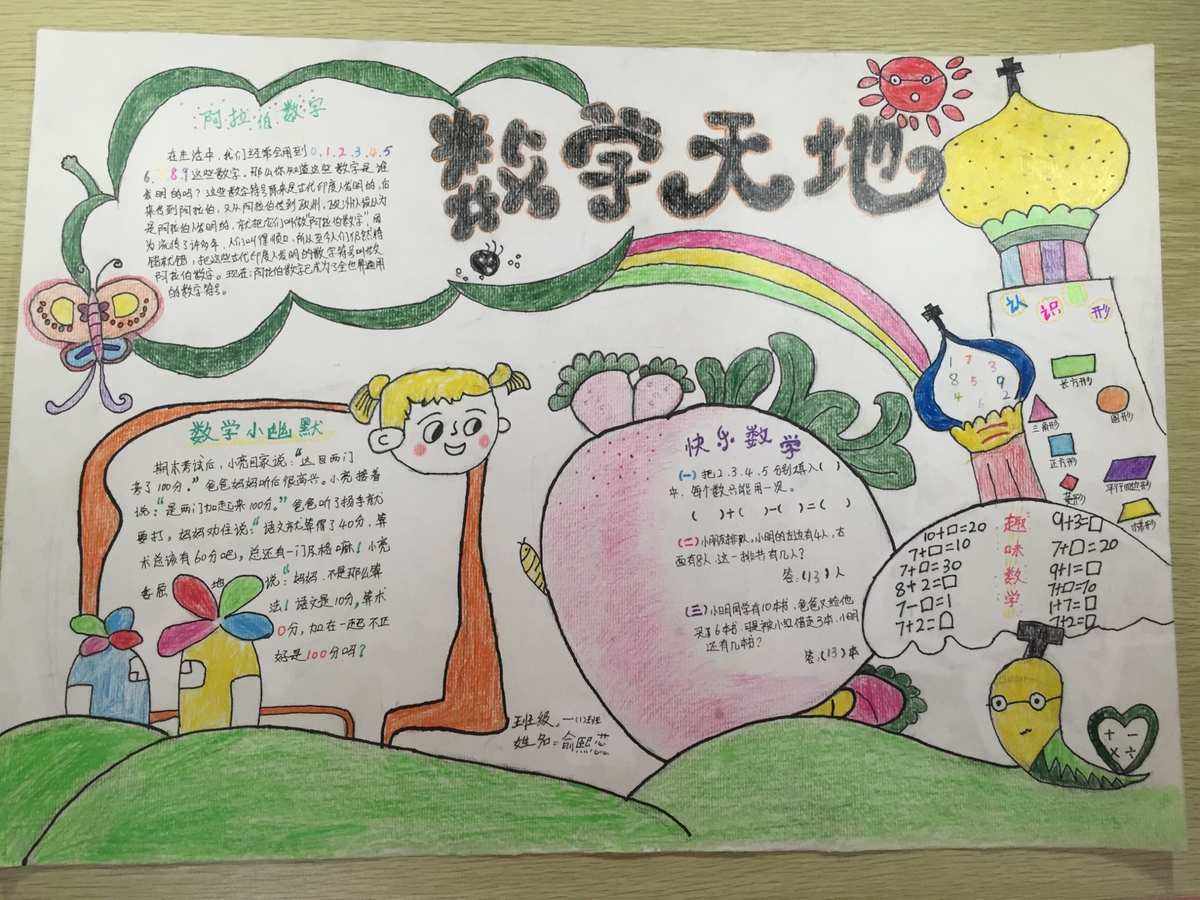 数学天地
阿拉伯数字
在生活中，我们经常会用到0.1.2.3.4.5
6.7.8.9这些数字。那么你知道这些数字是谁
发明的吗？这些数字符号原来是古代印度人发明的，后
来传到阿拉伯，又从阿拉伯传到欧洲，欧洲人误认为
是阿拉伯人发明的，就把它们叫做"阿拉伯数字"，因
为流传了许多年，人们叫惯顺口，所以至今人们仍然将
错就错，把这些古代印度人发明的数字符号叫做
阿拉伯数字。现在，阿拉伯数字已成为了全世界通用
的数字符号。
认识图形
长方形
圆形
三角形
正方形
平行四边形
菱形
梯形
1 2 3
8 5 9
4 6 2
数学小幽默
期末考试后，小亮回家说："这日两门
考了100分。"爸爸妈妈听后很高兴。小亮接着
说："是两门加起来100分。"爸爸听了扬手就
要打，妈妈劝住说："语文就算得了40分，算
术总该有60分吧，总还有一门及格嘛！小亮
委屈 地 说："妈妈，不是那么算
法！语文是10分，算术
0分，加在一起不正
好是100分吗？
快乐数学
(一) 把2.3.4.5分别填入( )
中，每个数只能用一次。
( )+( )-( )=( )
(二) 小明排排队，小明的左边有4人，右
面有8人，这一排共有几人？
答：(13)人
(三) 小明同学有10本书，爸爸又给他
买了6本书，可是被小红借走3本，小明
还有几本书？
答：(13)本
趣味数学
10+□=20
7+□=10
7+□=30
8+2=□
7-□=1
7+2=□
9+3=□
7+□=20
9+1=□
7+□=10
1+7=□
7+2=□
班级：一(1)班
姓名：俞熙芯
+ -
× ÷